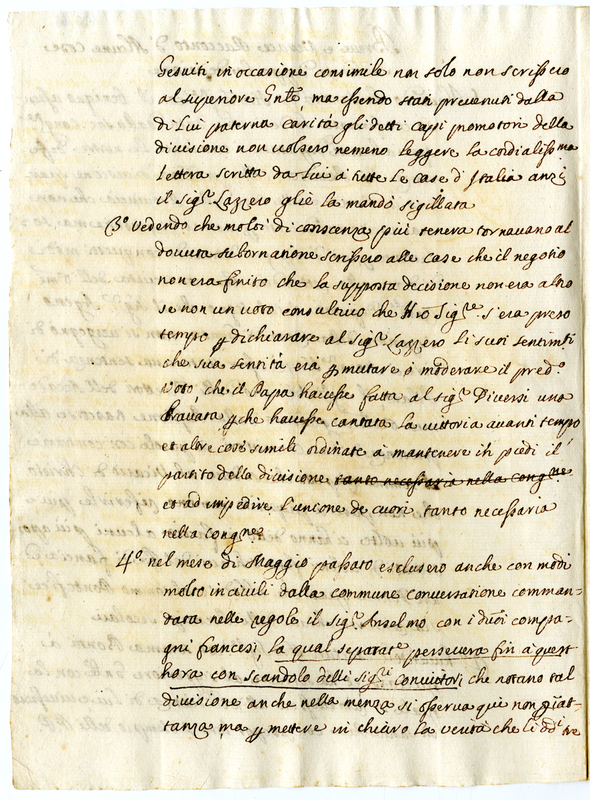 Gesuiti, in occasione consimile non solo non scrissero
al superiore Gnle, ma essendo stati prevenuti dalla
di Lui paterna carità gli detti capi promotori della
divisione non volsero nemeno leggere la cordialissma
lettera scritta da lui à tutte le case d'Italia anzi
il sigr Lazzero gliè la mandò sigillata
3º vedendo che molti di conscenza piu tenera tornavano al
dovuta subornatione scrissero alle case che il negotio
non era finito che la supposta decisione non era altro
se non un voto consultivo che sigre s'era preso
tempo p dichiarare al sigr Lazzero li suoi sentimti
che sua sentità era p mutare ò moderare il predo
voto, che il Papa havesse fatta al sigr Diversi una
bravata p che havesse cantata la vittoria avanti tempo
et altre cose simili ordinate à mantenere in piedi il
partito della divisione tanto necessaria nella congne
et ad impedire l'unione de cuori tanto necessaria
nella congne
4º nel mese di Maggio passato esclusero anche con modi
molto incivili dalla commune conversatione comman=
data nelle regole il sigr Anselmo con i duoi compa=
gni francesi, la qual separate persevera fin à quest
hora con scandolo delli sigri convittori, che notano tal
divisione anche nella menza si osserva qui non
tanza, ma p mettere in chiaro la verità che li ddi tre